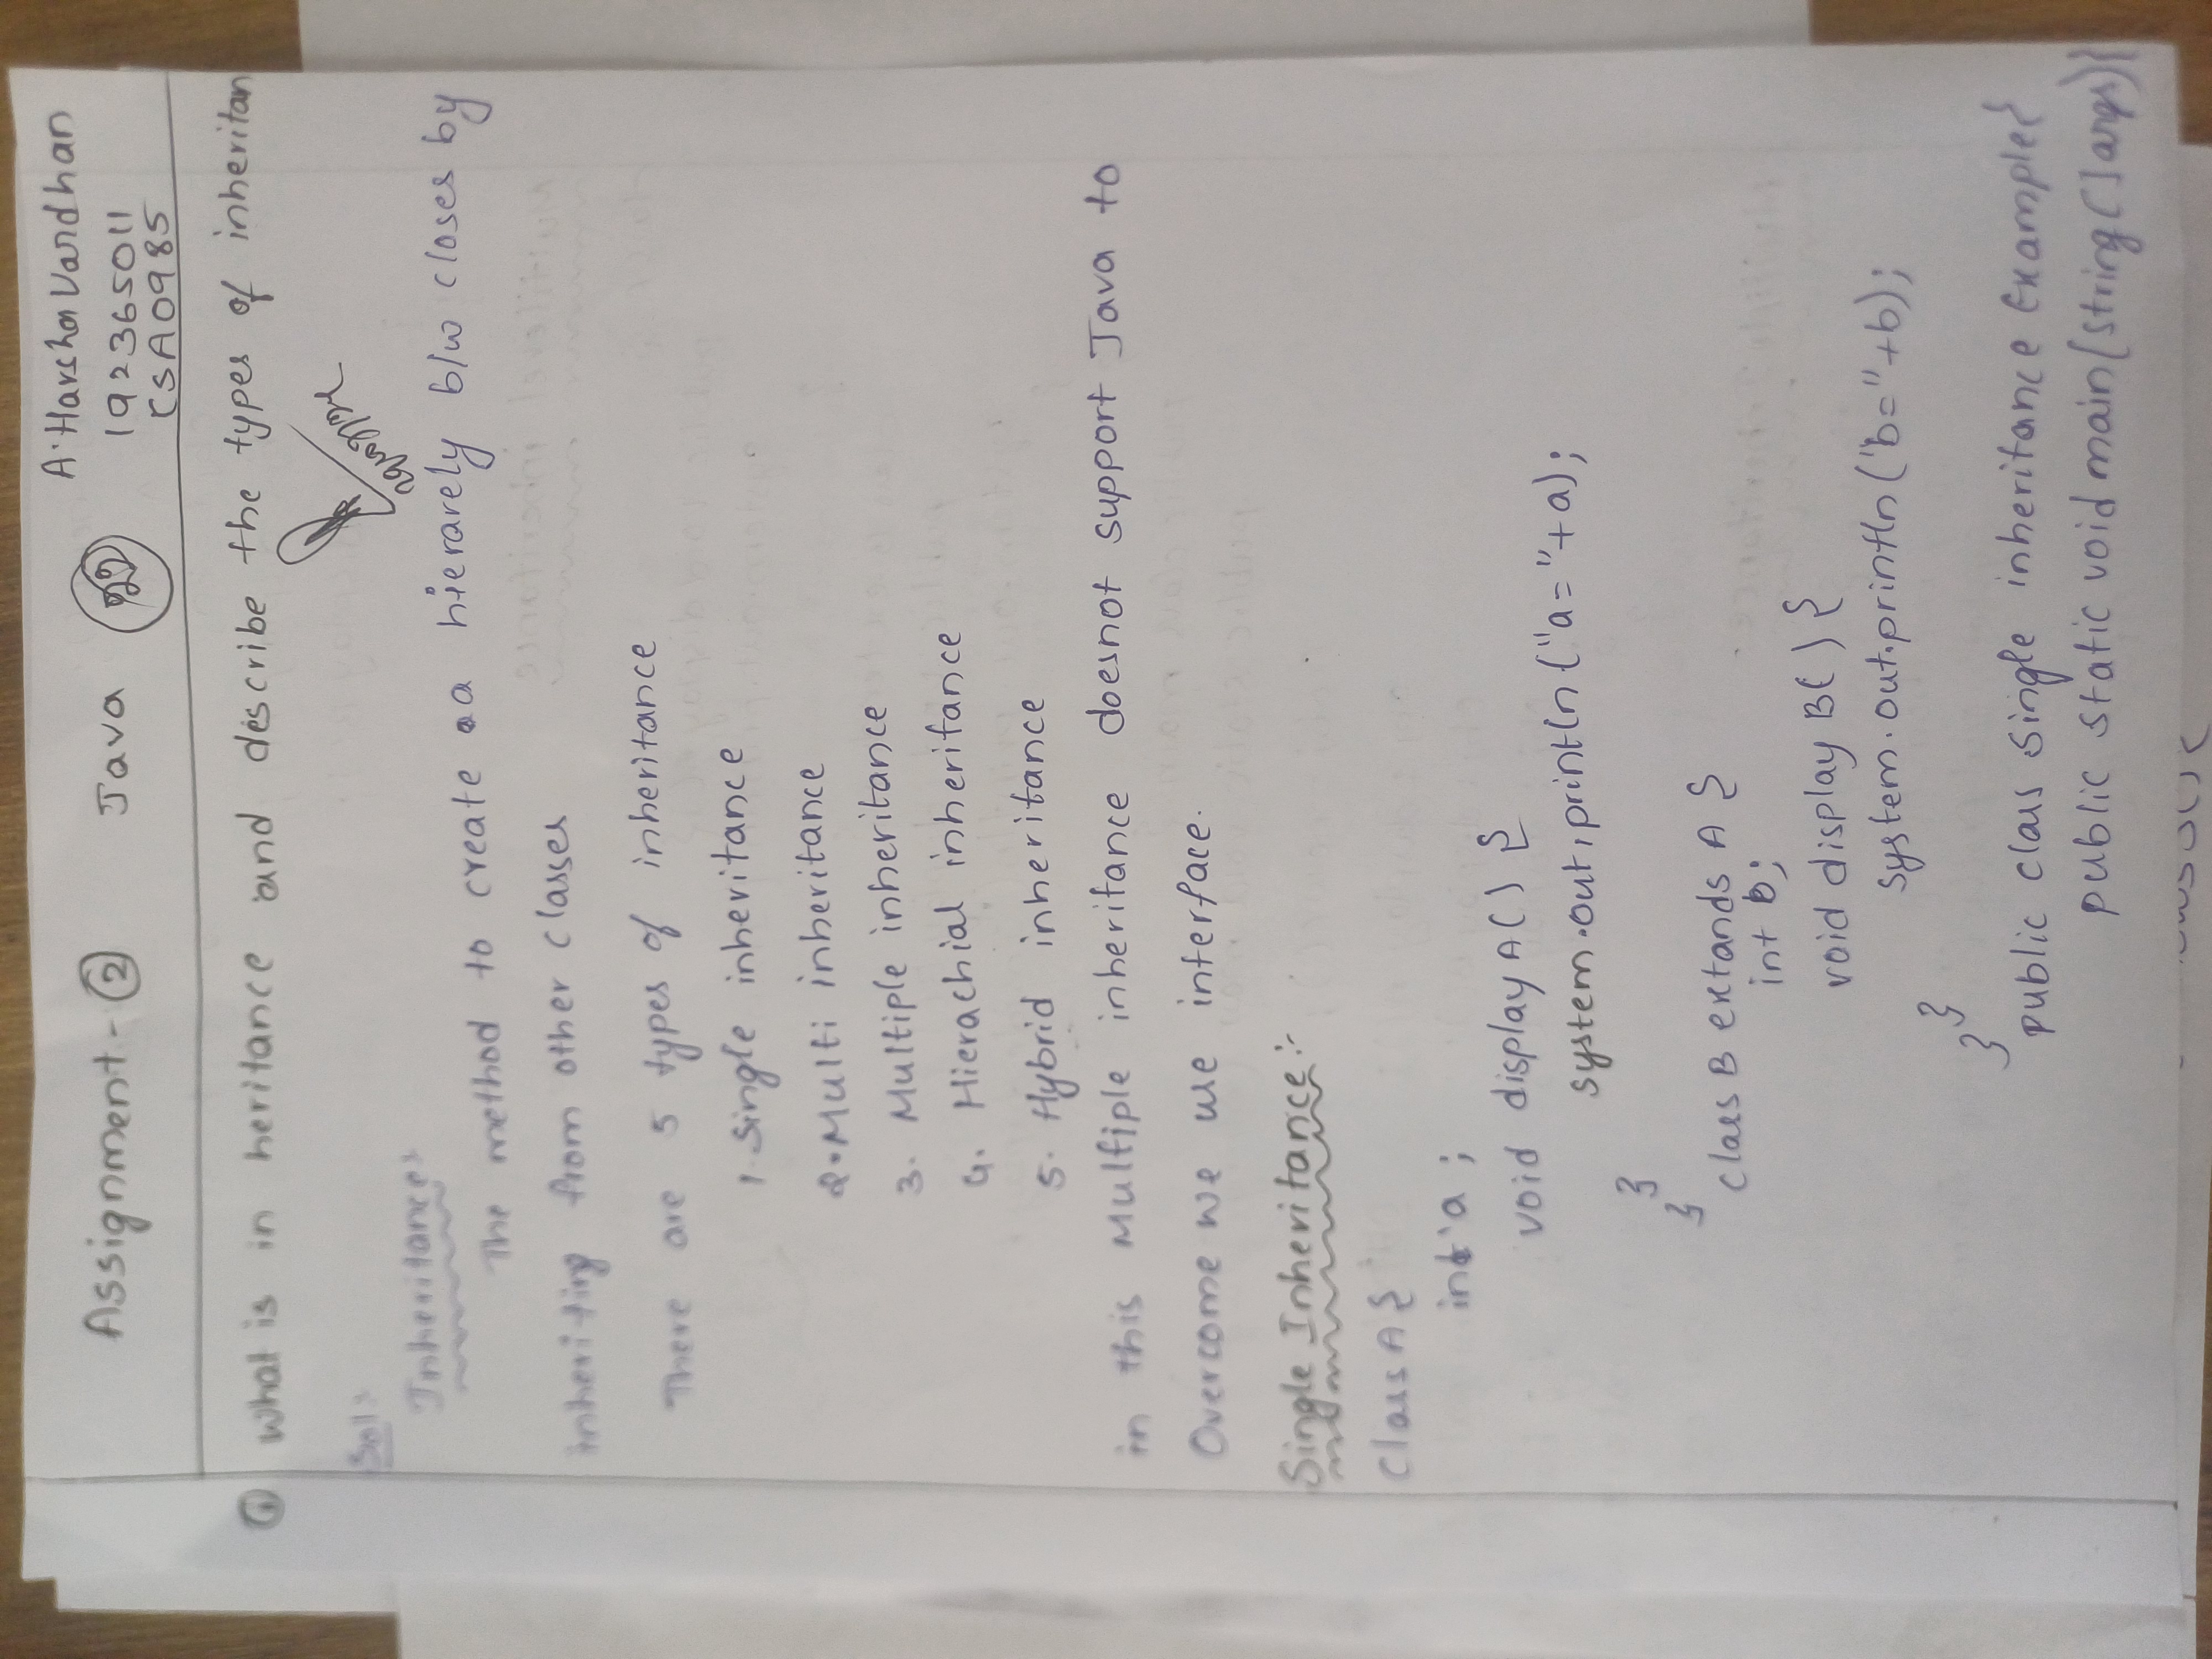 A. Harsha Vardhan
Assignment - ② Java
192365011
CSA0985
① What is in heritance and describe the types of inheritan
Sol:
Inheritance:
The method to create a hierarely b/w closes by
inheriting from other classes
There are 5 types of inheritance
1. Single inheritance
2. Multi inheritance
3. Multiple inheritance
4. Hierachial inheritance
5. Hybrid inheritance
in this Multiple inheritance doesnot support Java to
Overcome we use interface.
Single Inheritance :-
Class A {
int a ;
void display A() {
system.out.println ("a= "+a);
}
}
class B extands A {
int b;
void display B() {
system.out.println ("b= "+b);
}
}
public class Single inheritance Example{
public static void main(string []args){